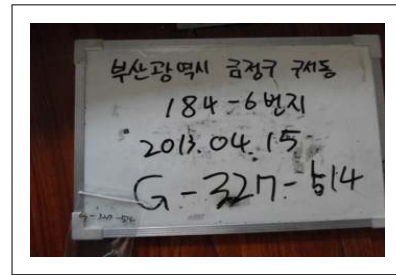 부산광역시 금정구 구서동
184-6번지
2013.04.15
G-327-514